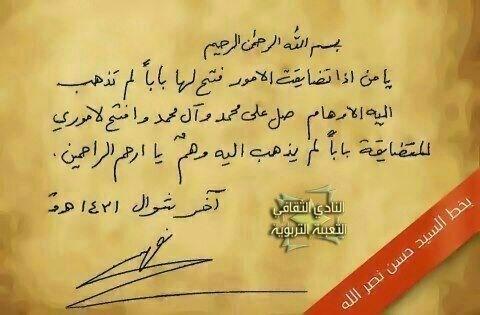 بسم الله الرحمن الرحيم
يا من اذا تضايقت الامور فتح لها باباً لم تذهب
اليه الاوهام صل على محمد وآل محمد وافتح لاموري
المتضايقة باباً لم يذهب اليه وهمٌ يا ارحم الراحمين .
آخر شوال ١٤٣١ هـ
النادي الثقافي
التعبئة التربوية
بخط السيد حسن نصر الله